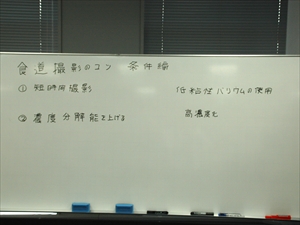 食道撮影のコツ 条件編
① 短時間撮影
低粘性バリウムの使用
② 濃度分解能を上げる
高濃度を